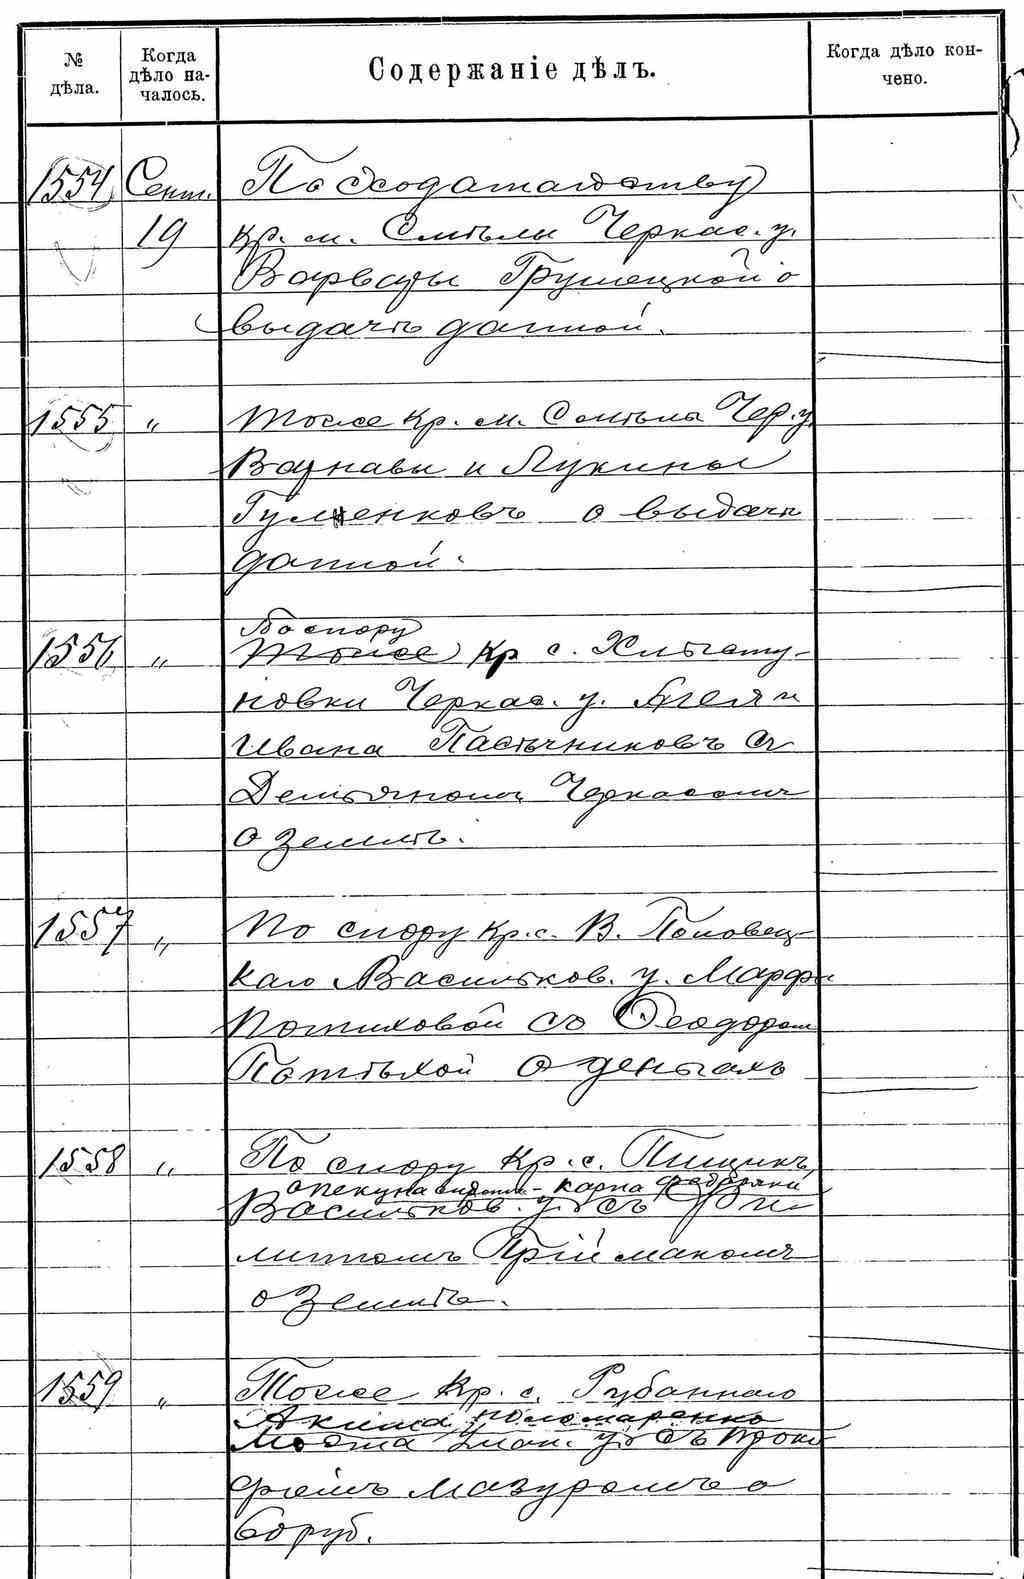 № дѣла.
Когда дѣло на-
чалось.
Содержаніе дѣлъ.
Когда дѣло кон-
чено.
1554 Сент. По ходатайству
19 кр. м. Смѣлы Черкас. у.
Варвары Грушецкой о
выдачѣ данной.
1555 „ Тоже кр. м. Смѣлы Чер. у.
Варнавы и Лукины
Гуменковъ о выдачѣ
данной.
По спору
1556 „ Тоже кр с. Хлѣсту-
новки Черкас. у. Агея и
Ивана Пасѣчниковъ съ
Демьяномъ Черкасомъ
о землѣ.
1557 „ По спору кр. с. В. Половец-
каго Васильков. у. Марфы
Потиховой съ Ѳеодоромъ
Потѣхой о деньгахъ
1558 „ По спору кр. с. Пищикъ
опекуна Карпа
Васильков. у. съ Фи-
липпомъ Пріймакомъ
о землѣ.
1559 „ Тоже кр. с. Рубаннаго
Акима Поломаренко
Моста Уман. у. съ Проко-
фіемъ Мазуромъ о
60 руб.